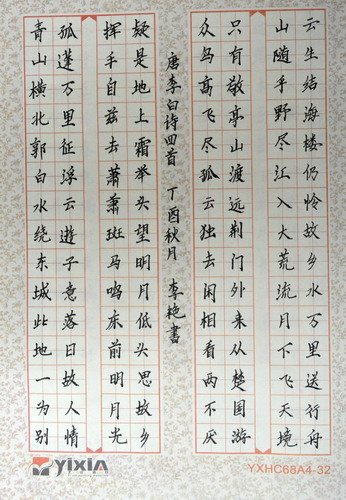 青山横北郭白水绕东城此地一为别
孤蓬万里征浮云遊子意落日故人情
挥手自兹去蕭蕭斑马鸣床前明月光
疑是地上霜举头望明月低头思故乡
唐李白诗四首 丁酉秋月 李艳書
众鸟高飞尽孤云独去闲相看两不厌
只有敬亭山渡远荆门外来从楚国游
山随平野尽江入大荒流月下飞天境
云生结海楼仍怜故乡水万里送行舟
yixin
YXHC68A4-32